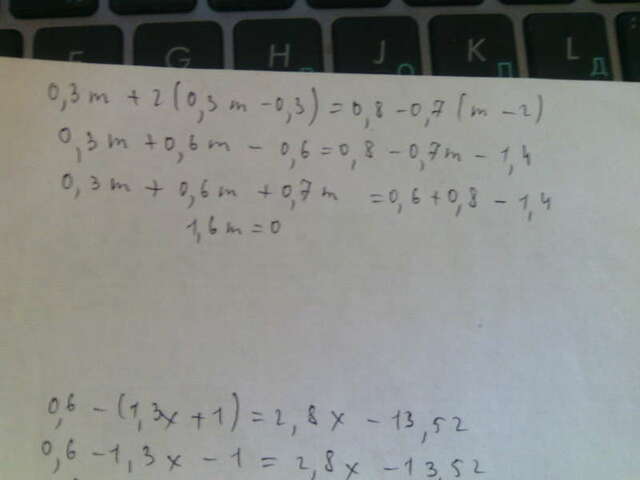 F G H J K L
О П Д
0,3m + 2(0,3m - 0,3) = 0,8 - 0,7(m - 2)
0,3m + 0,6m - 0,6 = 0,8 - 0,7m - 1,4
0,3m + 0,6m + 0,7m = 0,6 + 0,8 - 1,4
1,6m = 0
0,6 - (1,3x + 1) = 2,8x - 13,52
0,6 - 1,3x - 1 = 2,8x - 13,52